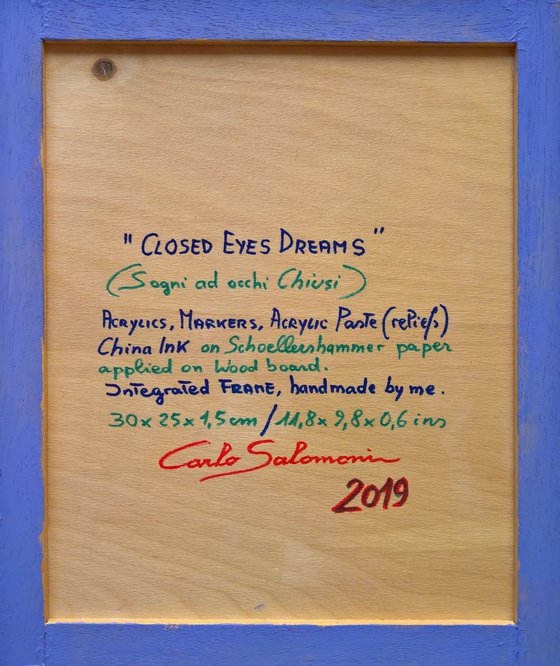 "CLOSED EYES DREAMS"
(Sogni ad occhi Chiusi)
ACRYLICS, MARKERS, ACRYLIC PASTE (reliefs)
CHINA INK on Schoellershammer paper
applied on Wood board.
Integrated FRAME, handmade by me.
30x25x1,5cm/11,8x9,8x0,6 ins
Carlo Salomoni
2019